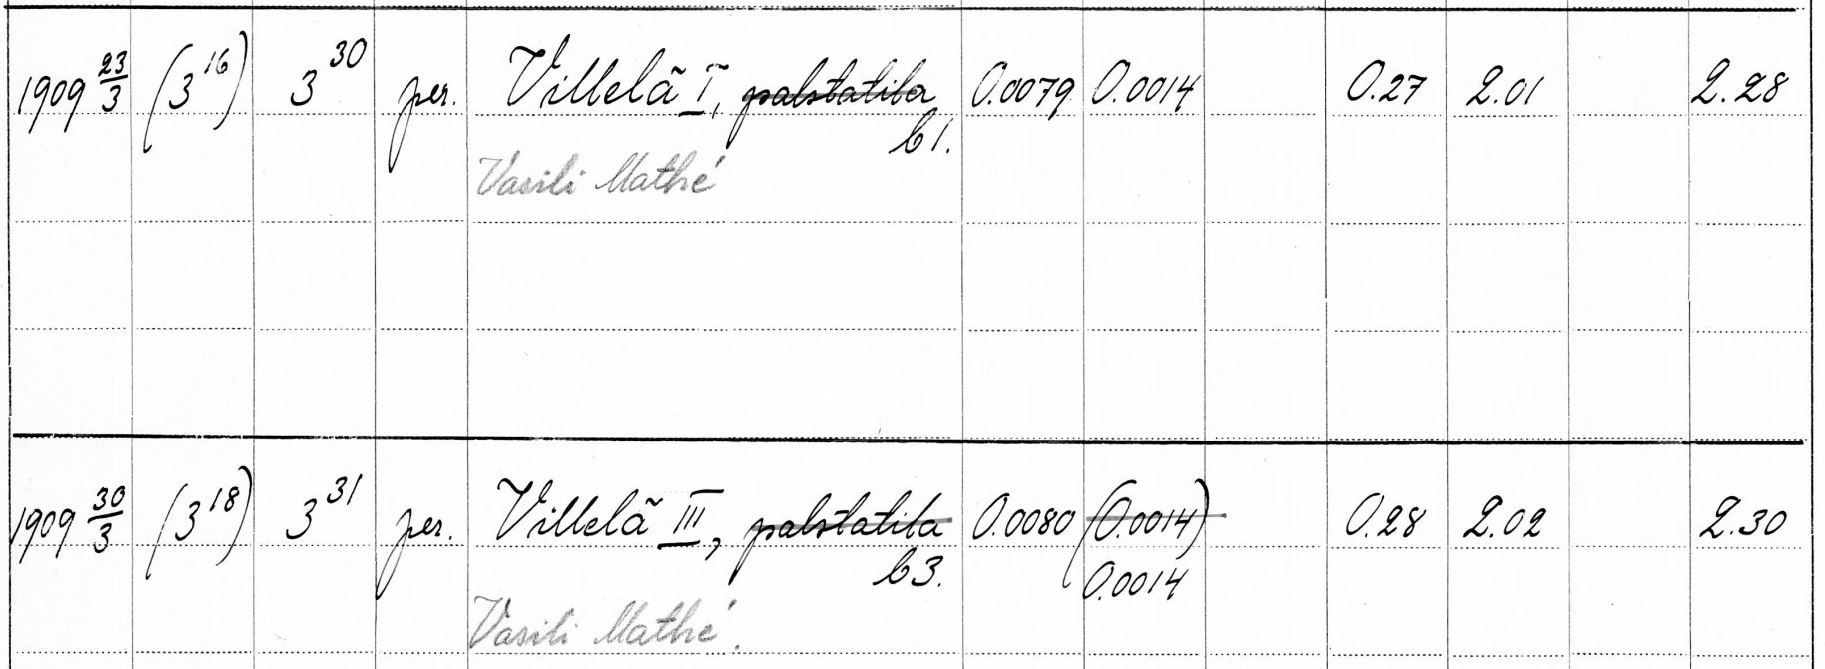 1909 23/3 (3^16) 3^30 per. Villelä I, palstatila 0.0079 0.0014 0.27 2.01 2.28
b1.
Vasili Mathé
1909 30/3 (3^18) 3^31 per. Villelä III, palstatila 0.0080 (0.0014) 0.28 2.02 2.30
b3. 0.0014
Vasili Mathé.